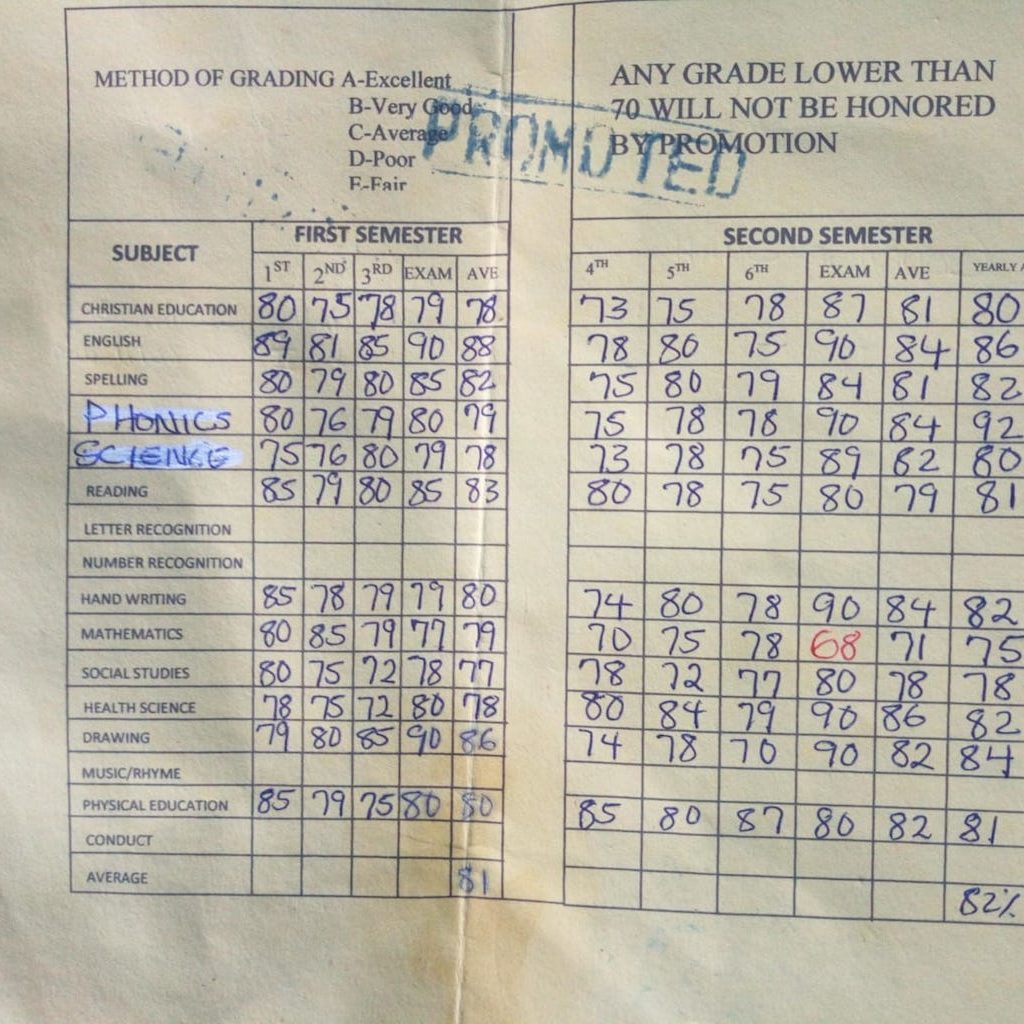 METHOD OF GRADING A-Excellent
B-Very Good
C-Average
D-Poor
F-Fair
ANY GRADE LOWER THAN
70 WILL NOT BE HONORED
BY PROMOTION
PROMOTED
SUBJECT FIRST SEMESTER SECOND SEMESTER
1ST 2ND 3RD EXAM AVE 4TH 5TH 6TH EXAM AVE YEARLY A
CHRISTIAN EDUCATION 80 75 78 79 78 73 75 78 87 81 80
ENGLISH 89 81 85 90 88 78 80 75 90 84 86
SPELLING 80 79 80 85 82 75 80 79 84 81 82
PHONICS 80 76 79 80 79 75 78 78 90 84 92
SCIENCE 75 76 80 79 78 73 78 75 89 82 80
READING 85 79 80 85 83 80 78 75 80 79 81
LETTER RECOGNITION
NUMBER RECOGNITION
HAND WRITING 85 78 79 79 80 74 80 78 90 84 82
MATHEMATICS 80 85 79 77 79 70 75 78 68 71 75
SOCIAL STUDIES 80 75 72 78 77 78 72 77 80 78 78
HEALTH SCIENCE 78 75 72 80 78 80 84 79 90 86 82
DRAWING 79 80 85 90 86 74 78 70 90 82 84
MUSIC/RHYME
PHYSICAL EDUCATION 85 79 75 80 80 85 80 87 80 82 81
CONDUCT
AVERAGE 81 82%